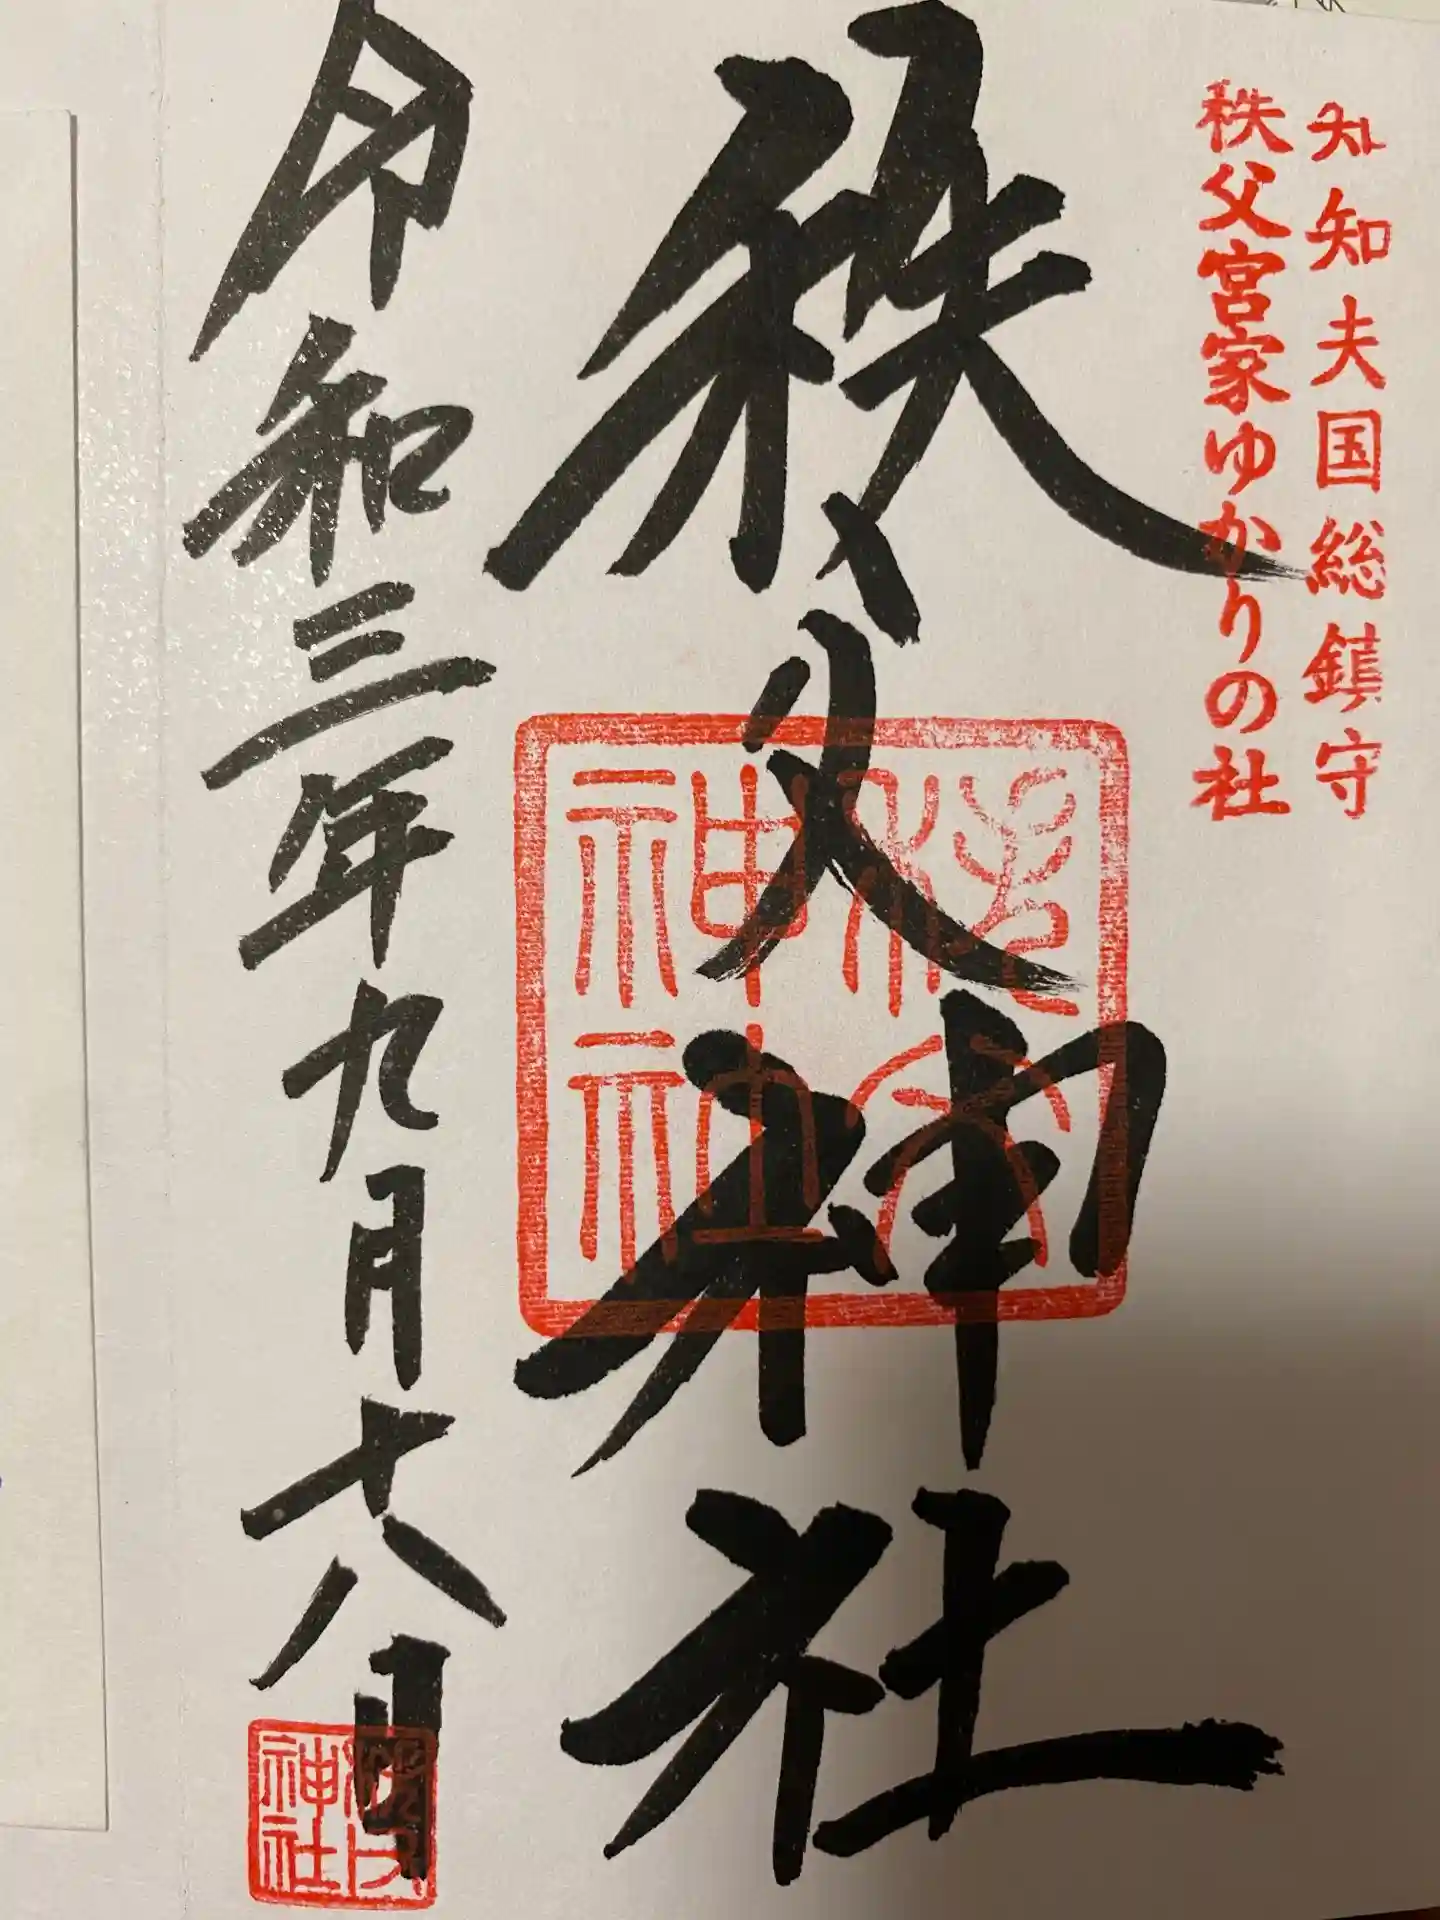 知知夫国総鎮守
秩父宮家ゆかりの社
秩父神社
秩父神社
令和三年九月十八日
秩父神社